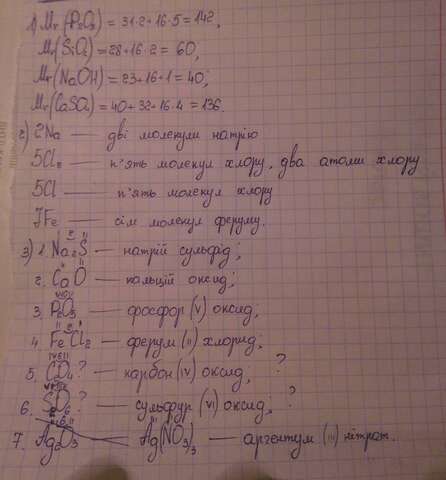 1) Mr(P₂O₅) = 31·2+16·5=142,
Mr(SiO₂) = 28+16·2 = 60,
Mr(NaOH) = 23+16+1 = 40;
Mr(CaSO₄) = 40+32+16·4 = 136.
2) 2Na — дві молекули натрію
5Cl₂ — п'ять молекул хлору, два атоми хлору
5Cl — п'ять молекул хлору
7Fe — сім молекул феруму.
3) 1. Na₂S — натрій сульфід;
2. CaO — кальцій оксид;
3. P₂O₅ — фосфор (V) оксид;
4. FeCl₂ — ферум (II) хлорид;
5. ? — карбон (IV) оксид; ?
6. ? — сульфур (VI) оксид; ?
7. Ag₂O₃ Ag(NO₃)₃ — аргентум (III) нітрат.